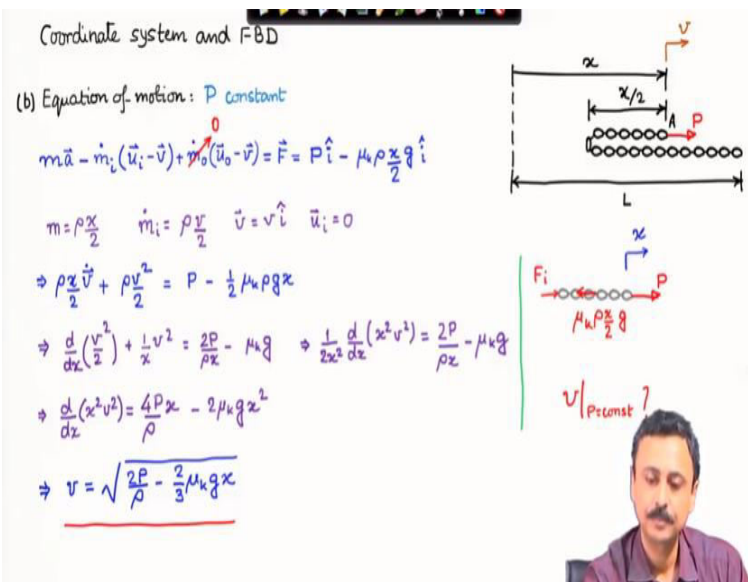 Coordinate system and FBD
(b) Equation of motion: P constant
0
mā⃗ − ṁᵢ(u⃗ᵢ−v⃗) + ṁₒ(u⃗ₒ−v⃗) = F⃗ = Pî − μₖρ x/2 g î
m = ρ x/2   ṁᵢ = ρ v/2   v⃗ = v î   u⃗ᵢ = 0
⇒ ρ x/2 v̇ + ρ v²/2 = P − 1/2 μₖρgx
⇒ d/dx (v²/2) + 1/x v² = 2P/ρx − μₖg   ⇒ 1/2x² d/dx (x²v²) = 2P/ρx − μₖg
⇒ d/dx (x²v²) = 4Px/ρ − 2μₖgx²
⇒ v = √(2P/ρ − 2/3 μₖgx)
v
x
x/2
A P
L
x
Fᵢ P
μₖρ x/2 g
v|P=const ?